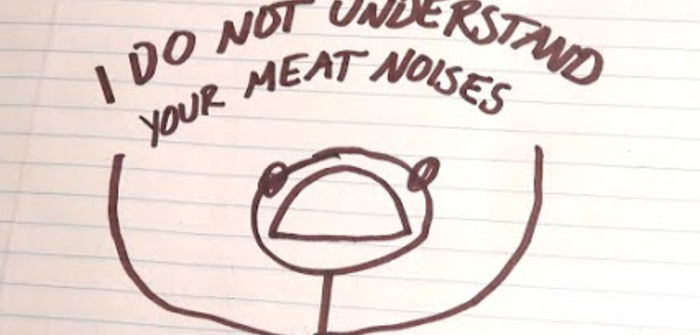 I DO NOT UNDERSTAND
YOUR MEAT NOISES